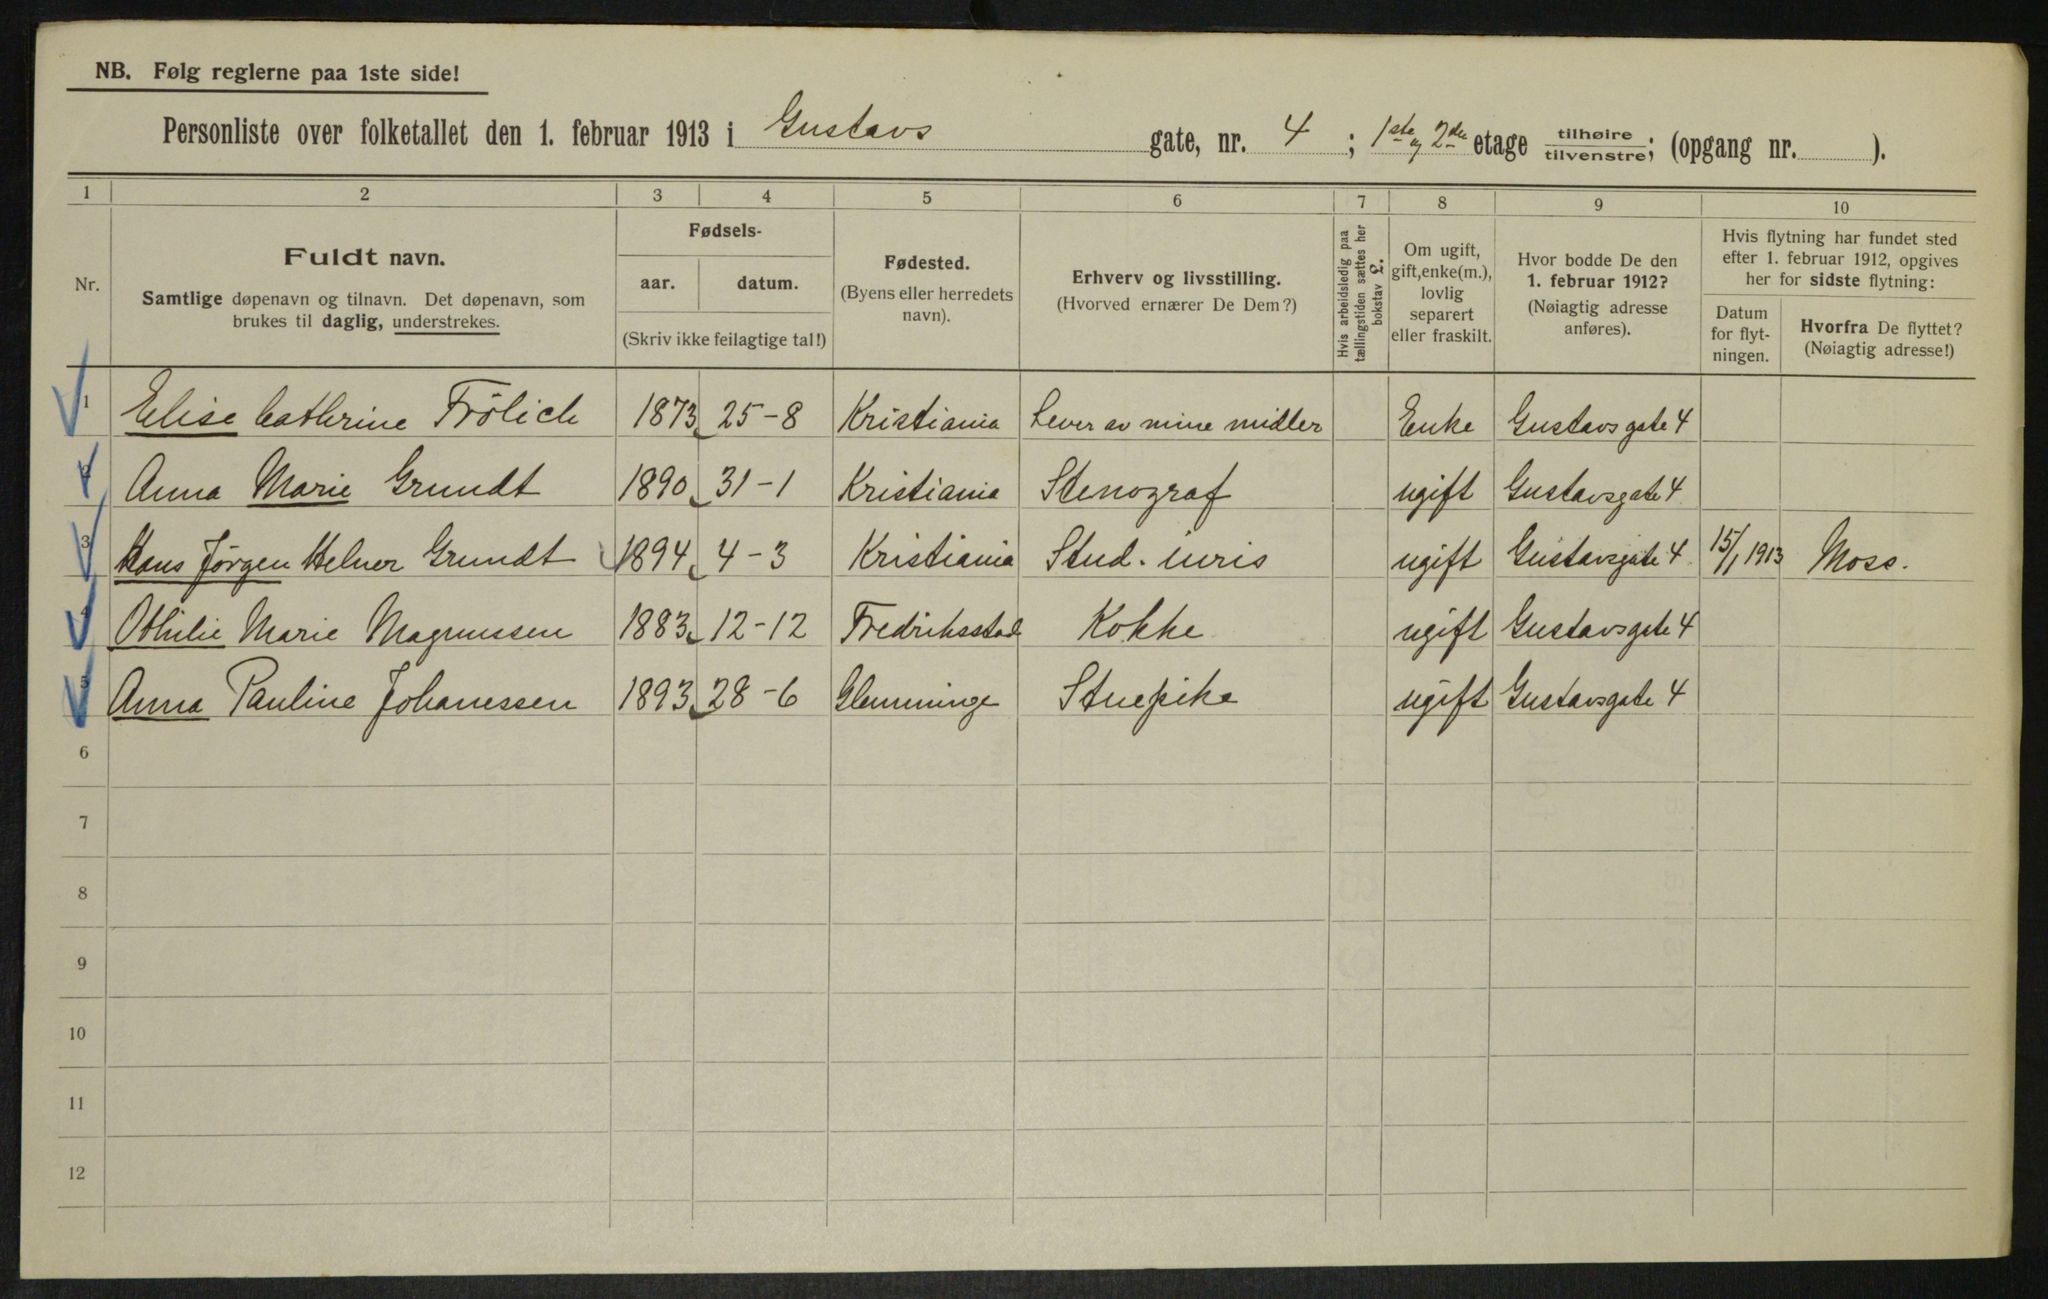 NB. Følg reglerne paa 1ste side!
Personliste over folketallet den 1. februar 1913 i Gustavs gate, nr. 4 ; 1ste og 2den etage tilhøire/tilvenstre; (opgang nr. ).
1 2 3 4 5 6 7 8 9 10
Nr.
Fuldt navn.
Samtlige døpenavn og tilnavn. Det døpenavn, som
brukes til daglig, understrekes.
Fødsels-
aar. datum.
(Skriv ikke feilagtige tal!)
Fødested.
(Byens eller herredets
navn).
Erhverv og livsstilling.
(Hvorved ernærer De Dem?)
Hvis arbeidsledig paa
tællingstiden sættes her
bokstav L.
Om ugift,
gift, enke(m.),
lovlig
separert
eller fraskilt.
Hvor bodde De den
1. februar 1912?
(Nøiagtig adresse
anføres).
Hvis flytning har fundet sted
efter 1. februar 1912, opgives
her for sidste flytning:
Datum
for flyt-
ningen.
Hvorfra De flyttet?
(Nøiagtig adresse!)
1 Elise Cathrine Frölich 1873 25-8 Kristiania Lever av mine midler Enke Gustavsgate 4
2 Anna Marie Grundt 1890 31-1 Kristiania Stenograf ugift Gustavsgate 4
3 Hans Jørgen Helner Grundt 1894 4-3 Kristiania Stud. iuris ugift Gustavsgate 4 15/1 1913 Moss.
4 Othilie Marie Magnussen 1883 12-12 Fredriksstad Kokke ugift Gustavsgate 4
5 Anna Pauline Johanessen 1893 28-6 Glemminge Stuepike ugift Gustavsgate 4
6
7
8
9
10
11
12